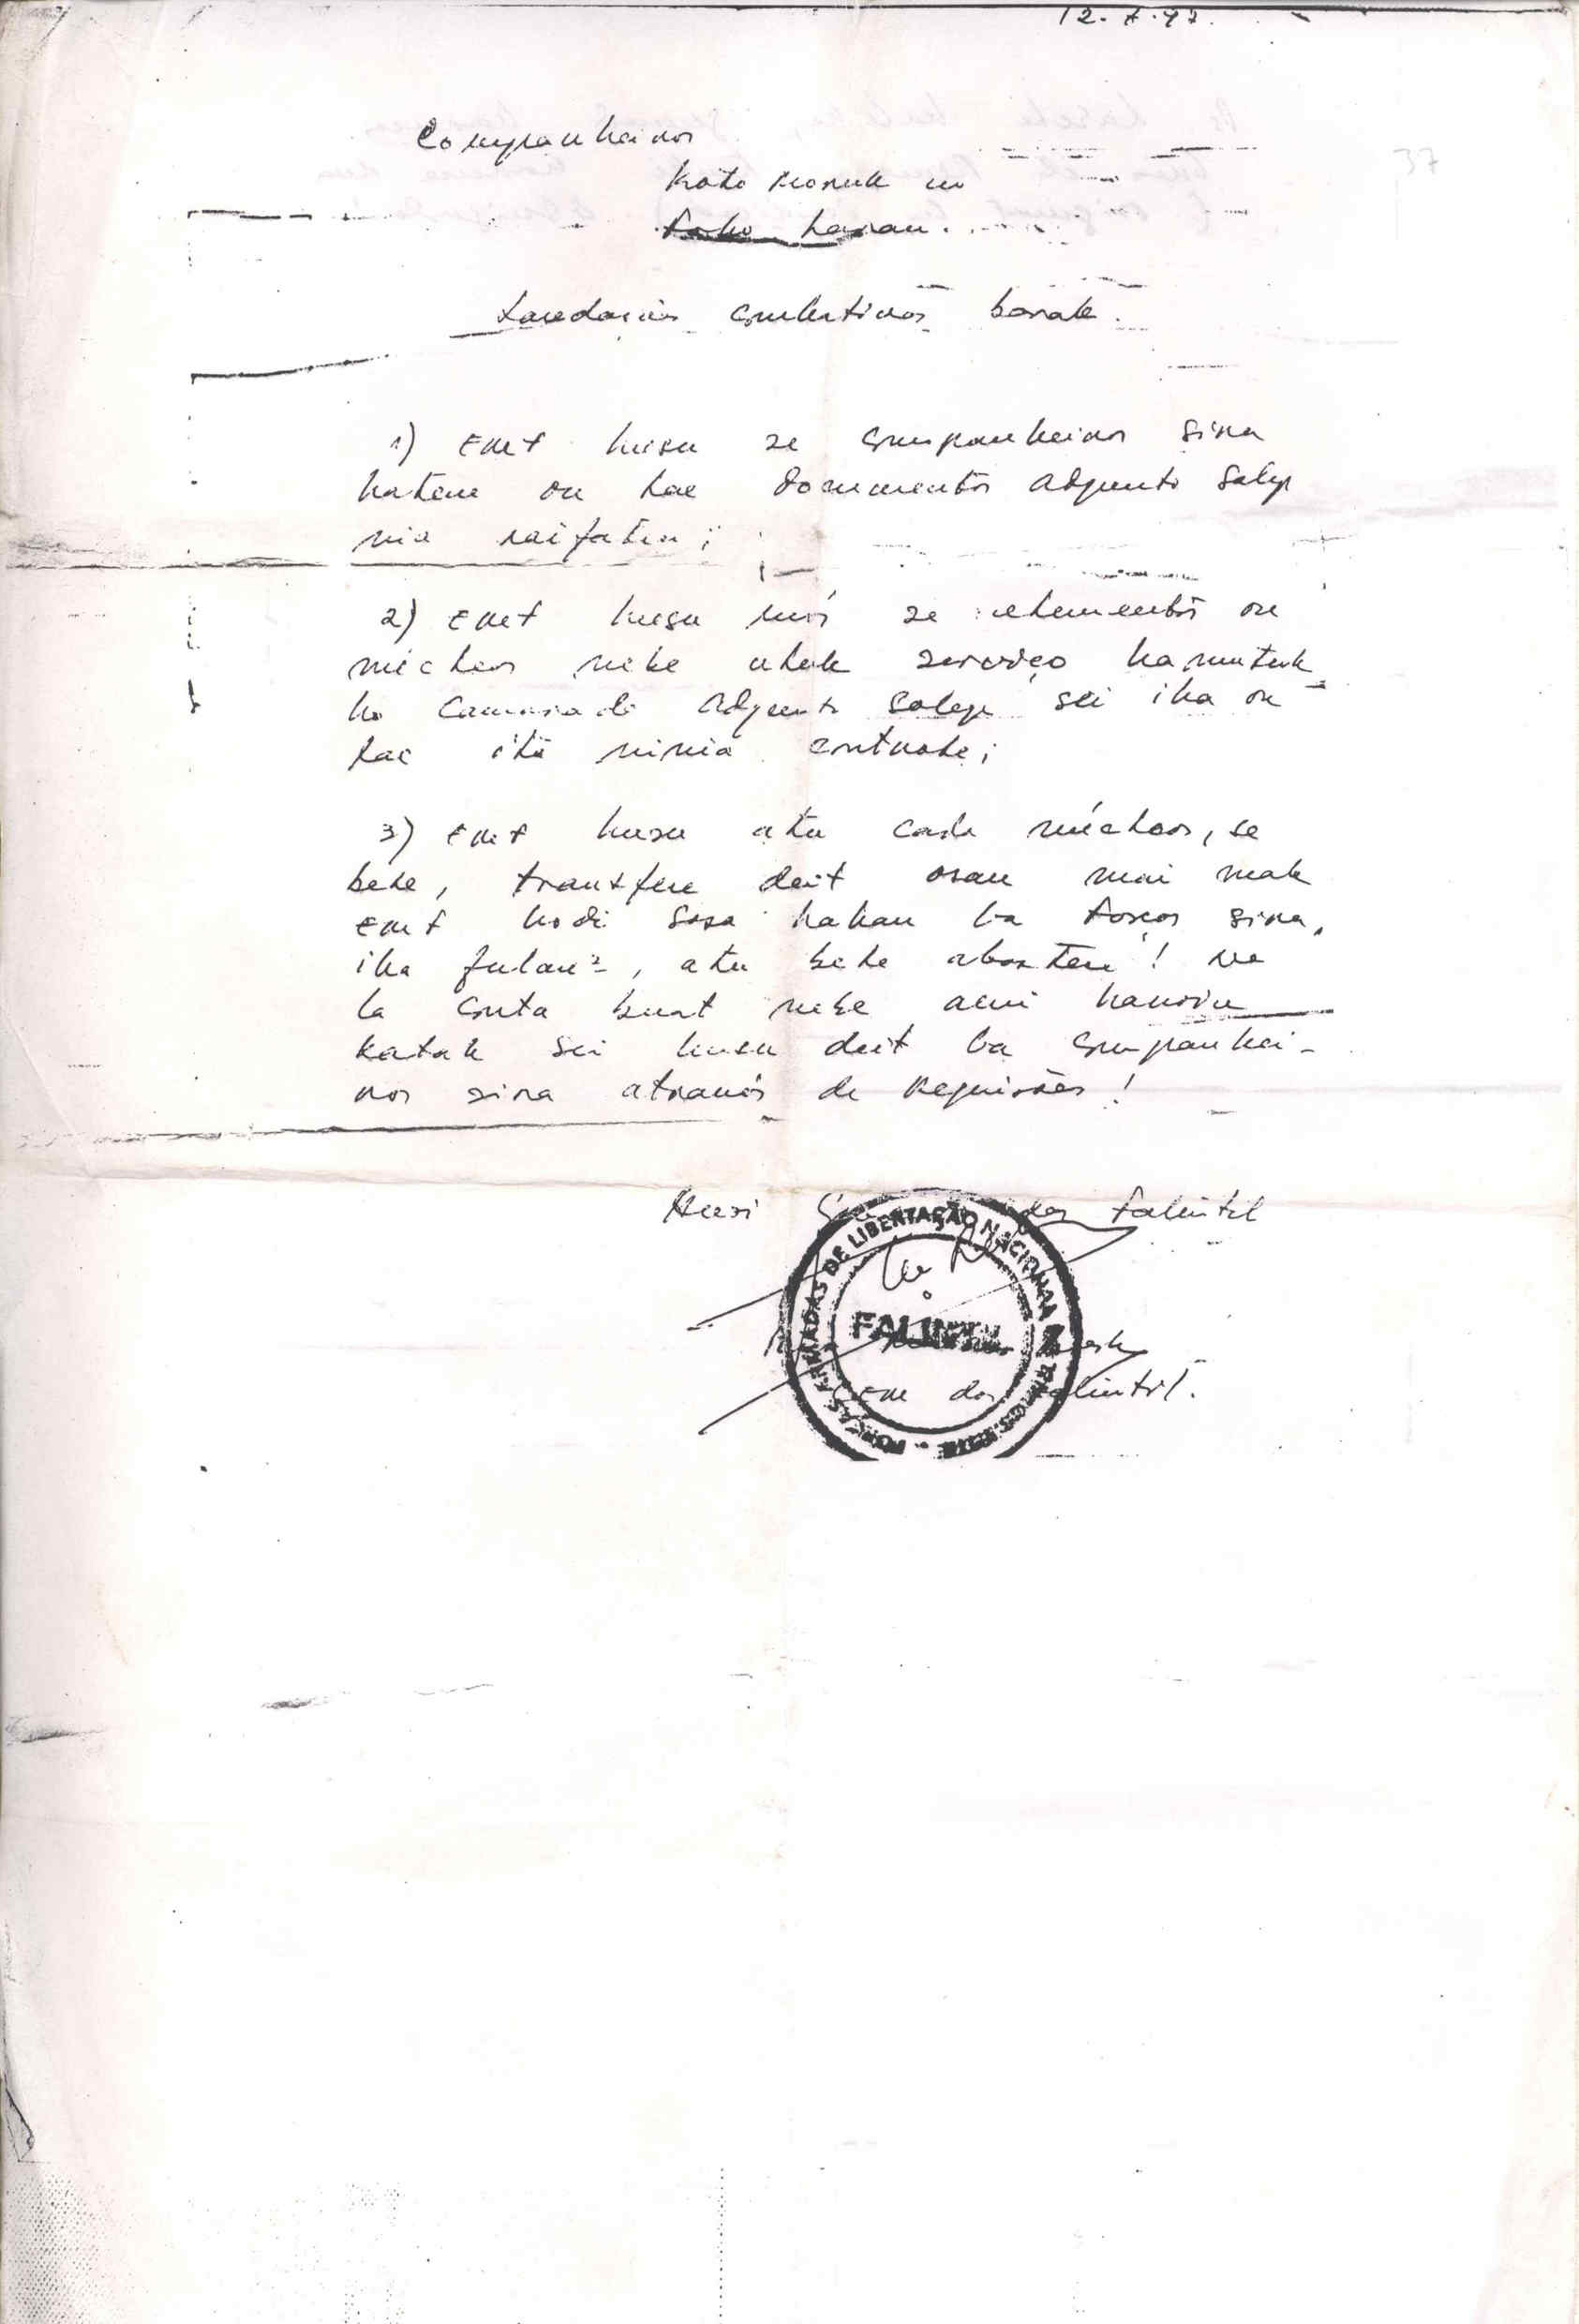 12.8.97.
37
Companheiros
Koto Moruk no
Foho Laran.
Saudações combativas barak.
1) EMF husu se companheiros sira
hatene ou lae documentos Adjunto Salep
nia raifatin;
2) EMF husu mós se elementos ou
núcleos nebe uluk serviço hamutuk
ho Camarada Adjunto Salep sei iha ou
lae iha ninia controle;
3) EMF husu atu cada núcleos, se
bele, transfere deit osan mai mak
EMF hodi sosa hahan ba forças sira,
iha fulan 2, atu bele abastece! Ne
la conta buat nebe ami hanoin
katak sei husu deit ba companhei-
ros sira através de requisões!
Husi dos Falintil
FORÇAS ARMADAS DE LIBERTAÇÃO NACIONAL DE TIMOR LESTE
FALINTIL
CEM das Falintil.